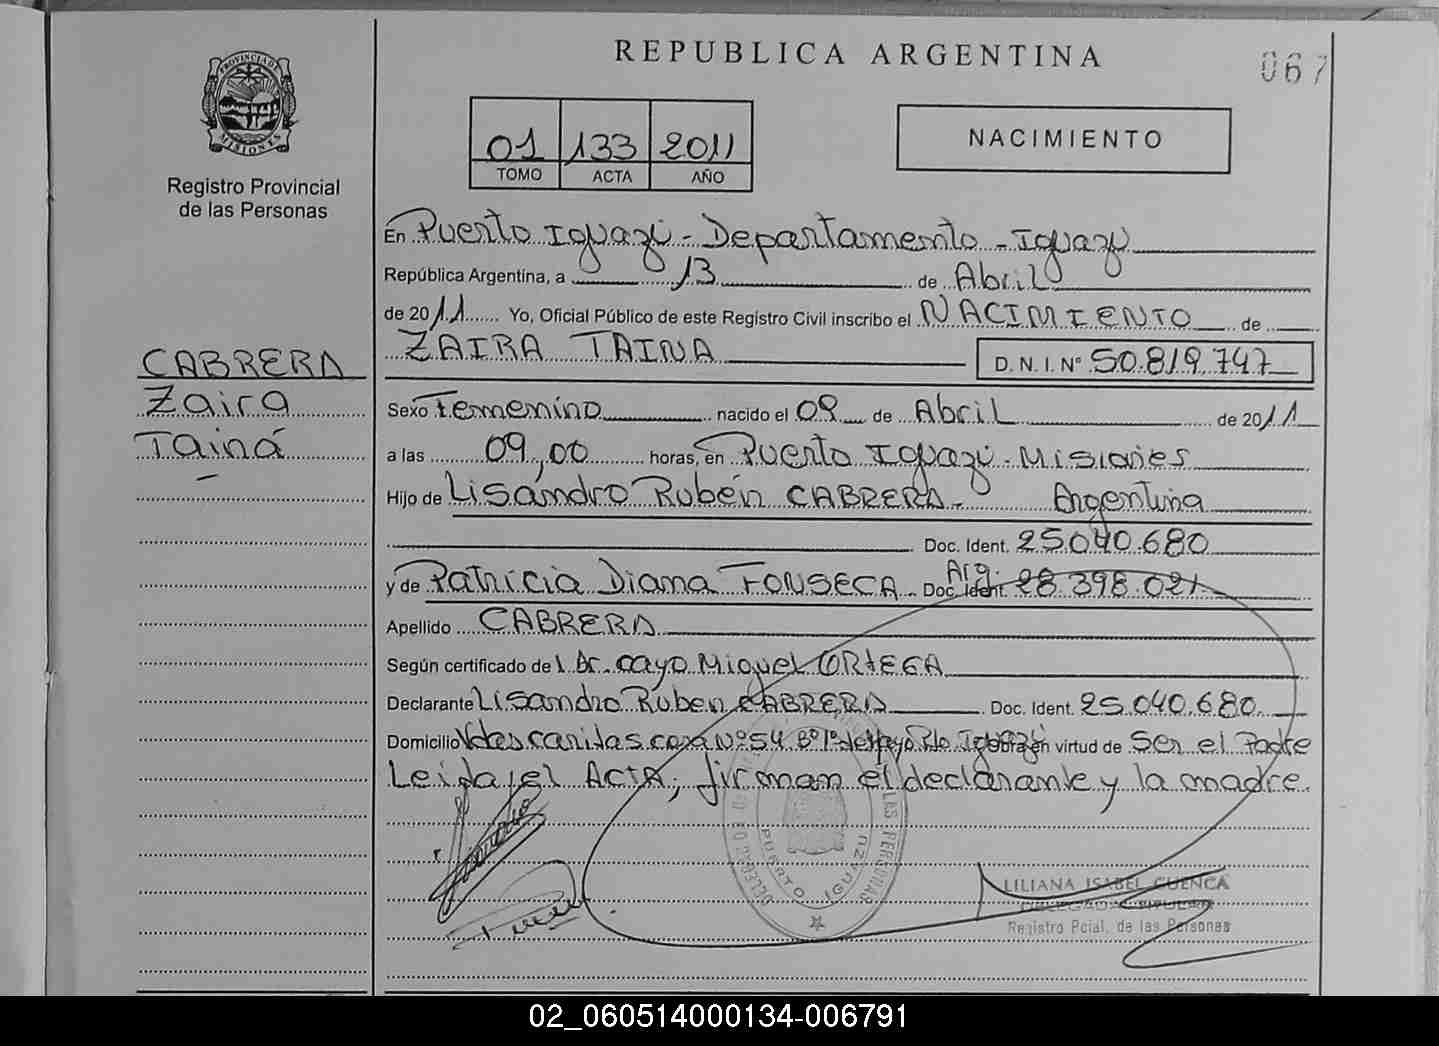 REPUBLICA ARGENTINA
067
PROVINCIA DE MISIONES
Registro Provincial
de las Personas
01 133 2011
TOMO ACTA AÑO
NACIMIENTO
En Puerto Iguazú - Departamento - Iguazú
República Argentina, a 13 de Abril
de 2011 Yo, Oficial Público de este Registro Civil inscribo el NACIMIENTO de
ZAIRA TAINA D.N.I. Nº 50.819.747
CABRERA
Zaira
Tainá
Sexo Femenino nacido el 09 de Abril de 2011
a las 09,00 horas, en Puerto Iguazú - Misiones
Hijo de Lisandro Rubén CABRERA - Argentina
Doc. Ident. 25.040.680
y de Patricia Diana FONSECA - Arg. Doc. Ident. 28.398.021
Apellido CABRERA
Según certificado del Dr. Cayo Miguel ORTEGA
Declarante Lisandro Rubén CABRERA Doc. Ident. 25.040.680
Domicilio casa Nº 54 Bº 1º de Mayo Pto Iguazú obra en virtud de Ser el Padre
Leida el Acta, firman el declarante y la madre.
PUERTO IGUAZU
LILIANA ISABEL CUENCA
DELEGADA TITULAR
Registro Pcial. de las Personas
02_060514000134-006791